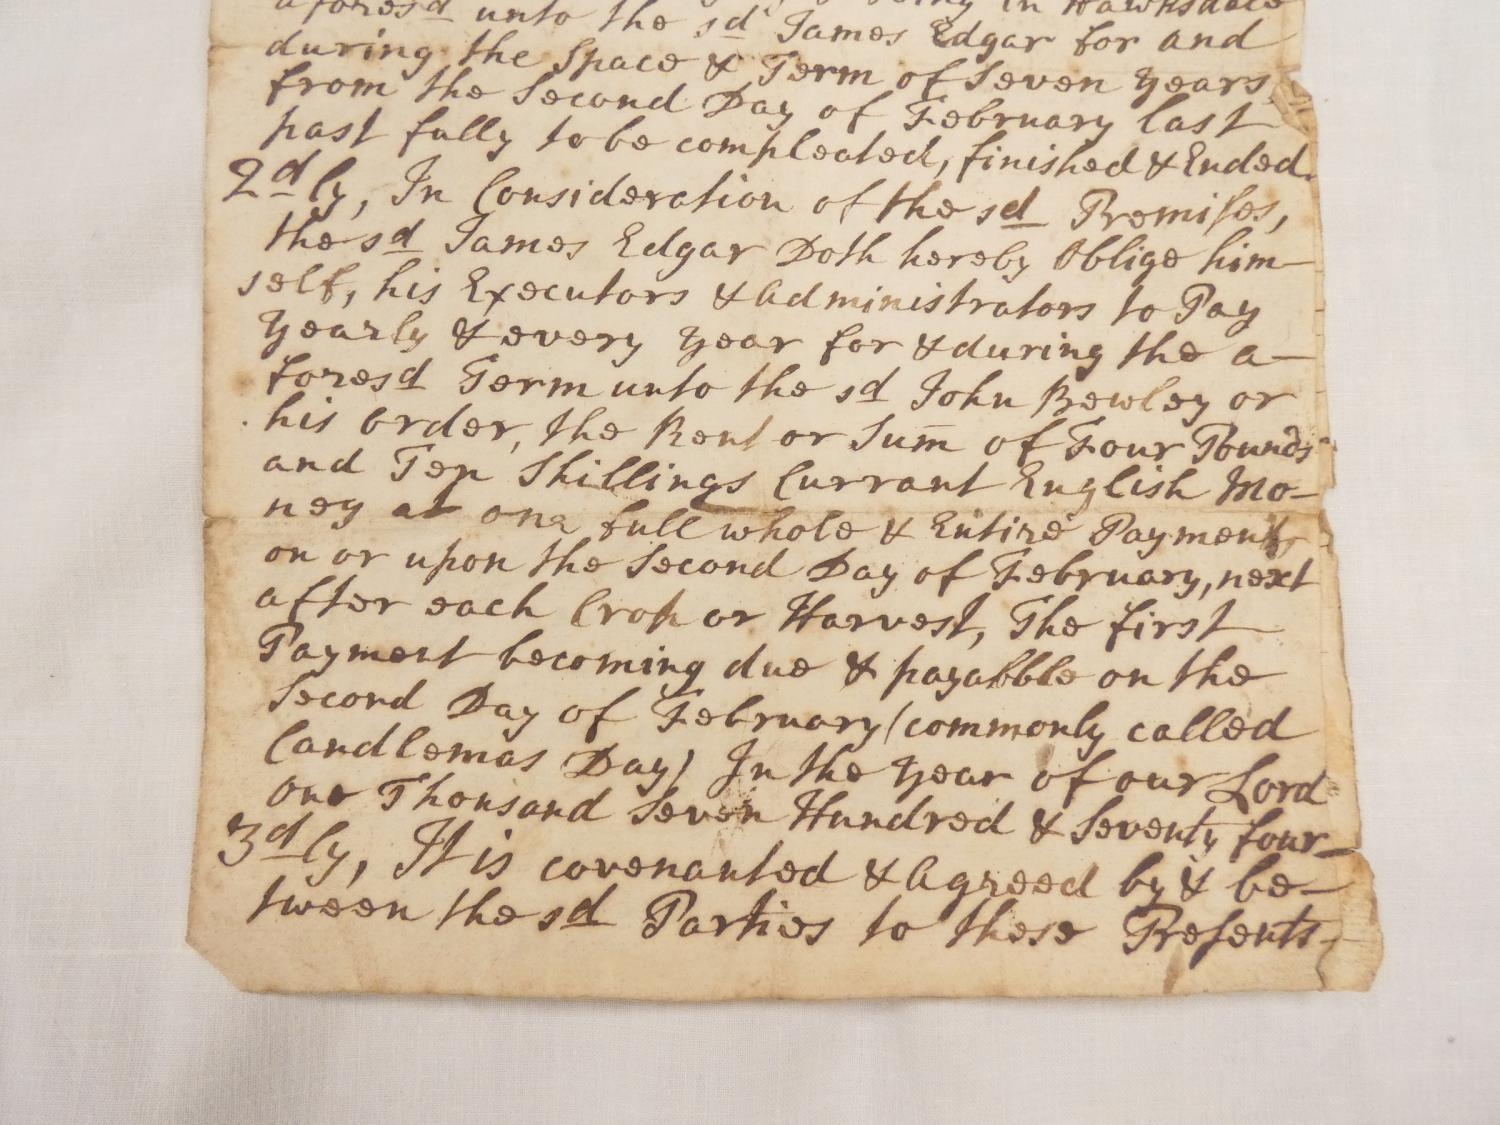 aforesd unto the sd James Edgar for and
during the Space & Term of Seven Years
from the Second Day of February last
past fully to be compleated, finished & Ended.
2dly, In Consideration of the sd Premises,
the sd James Edgar Doth hereby Oblige him-
self, his Executors & Administrators to Pay
Yearly & every Year for & during the a-
foresd Term unto the sd John Bewley or
his order, the Rent or Sum of Four Pounds
and Ten Shillings Currant English Mo-
ney at one full whole & Entire Payment
on or upon the Second Day of February, next
after each Crop or Harvest, The first
Payment becoming due & payabble on the
Second Day of February (commonly called
Candlemas Day) In the Year of our Lord
One Thousand Seven Hundred & Seventy four
3dly, It is covenanted & Agreed by & be-
tween the sd Parties to these Presents